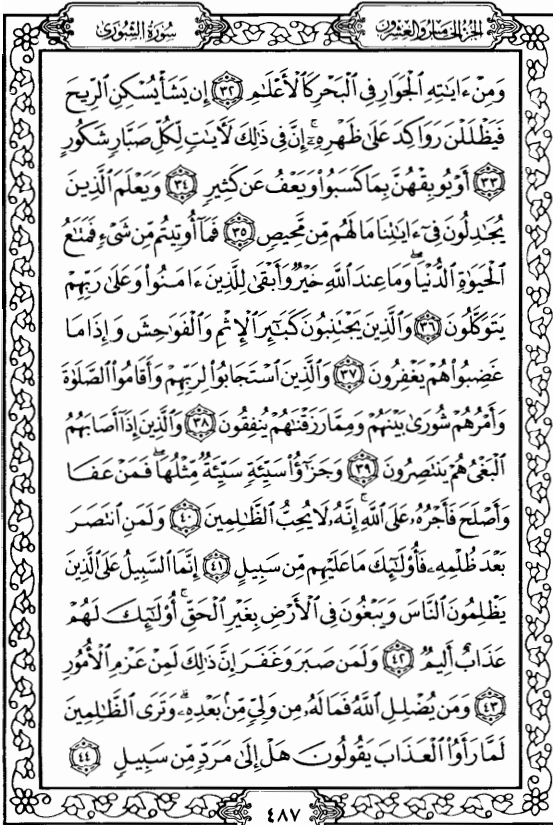 سُورَةُ الشُّورَىٰ
الجُزْءُ الخَامِسُ وَالعِشْرُونَ
وَمِنْ ءَايَٰتِهِ ٱلْجَوَارِ فِى ٱلْبَحْرِ كَٱلْأَعْلَٰمِ ٣٢ إِن يَشَأْ يُسْكِنِ ٱلرِّيحَ
فَيَظْلَلْنَ رَوَاكِدَ عَلَىٰ ظَهْرِهِۦٓ ۚ إِنَّ فِى ذَٰلِكَ لَءَايَٰتٍ لِّكُلِّ صَبَّارٍ شَكُورٍ
٣٣ أَوْ يُوبِقْهُنَّ بِمَا كَسَبُوا۟ وَيَعْفُ عَن كَثِيرٍ ٣٤ وَيَعْلَمَ ٱلَّذِينَ
يُجَٰدِلُونَ فِىٓ ءَايَٰتِنَا مَا لَهُم مِّن مَّحِيصٍ ٣٥ فَمَآ أُوتِيتُم مِّن شَىْءٍ فَمَتَٰعُ
ٱلْحَيَوٰةِ ٱلدُّنْيَا ۖ وَمَا عِندَ ٱللَّهِ خَيْرٌ وَأَبْقَىٰ لِلَّذِينَ ءَامَنُوا۟ وَعَلَىٰ رَبِّهِمْ
يَتَوَكَّلُونَ ٣٦ وَٱلَّذِينَ يَجْتَنِبُونَ كَبَٰٓئِرَ ٱلْإِثْمِ وَٱلْفَوَٰحِشَ وَإِذَا مَا
غَضِبُوا۟ هُمْ يَغْفِرُونَ ٣٧ وَٱلَّذِينَ ٱسْتَجَابُوا۟ لِرَبِّهِمْ وَأَقَامُوا۟ ٱلصَّلَوٰةَ
وَأَمْرُهُمْ شُورَىٰ بَيْنَهُمْ وَمِمَّا رَزَقْنَٰهُمْ يُنفِقُونَ ٣٨ وَٱلَّذِينَ إِذَآ أَصَابَهُمُ
ٱلْبَغْىُ هُمْ يَنتَصِرُونَ ٣٩ وَجَزَٰٓؤُا۟ سَيِّئَةٍ سَيِّئَةٌ مِّثْلُهَا ۖ فَمَنْ عَفَا
وَأَصْلَحَ فَأَجْرُهُۥ عَلَى ٱللَّهِ ۚ إِنَّهُۥ لَا يُحِبُّ ٱلظَّٰلِمِينَ ٤٠ وَلَمَنِ ٱنتَصَرَ
بَعْدَ ظُلْمِهِۦ فَأُو۟لَٰٓئِكَ مَا عَلَيْهِم مِّن سَبِيلٍ ٤١ إِنَّمَا ٱلسَّبِيلُ عَلَى ٱلَّذِينَ
يَظْلِمُونَ ٱلنَّاسَ وَيَبْغُونَ فِى ٱلْأَرْضِ بِغَيْرِ ٱلْحَقِّ ۚ أُو۟لَٰٓئِكَ لَهُمْ
عَذَابٌ أَلِيمٌ ٤٢ وَلَمَن صَبَرَ وَغَفَرَ إِنَّ ذَٰلِكَ لَمِنْ عَزْمِ ٱلْأُمُورِ
٤٣ وَمَن يُضْلِلِ ٱللَّهُ فَمَا لَهُۥ مِن وَلِىٍّ مِّنۢ بَعْدِهِۦ ۗ وَتَرَى ٱلظَّٰلِمِينَ
لَمَّا رَأَوُا۟ ٱلْعَذَابَ يَقُولُونَ هَلْ إِلَىٰ مَرَدٍّ مِّن سَبِيلٍ ٤٤
٤٨٧